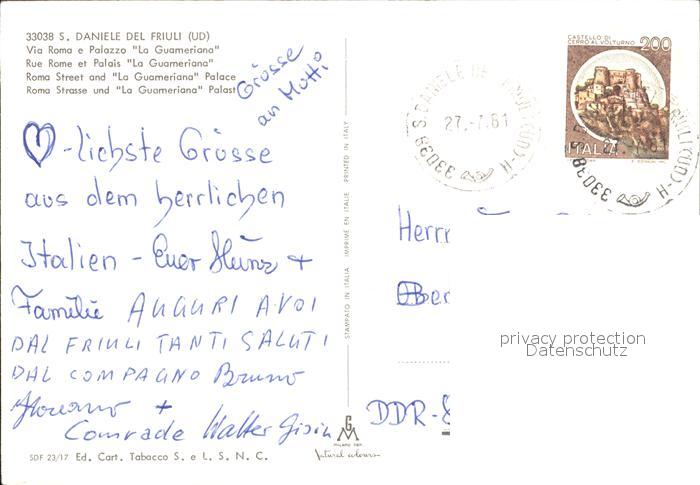 33038 S. DANIELE DEL FRIULI (UD)
Via Roma e Palazzo "La Guarneriana"
Rue Rome et Palais "La Guarneriana"
Roma Street and "La Guarneriana" Palace
Roma Strasse und "La Guarneriana" Palast
Grüsse
an Mutti
-lichste Grüsse
aus dem herrlichen
Italien - Euer Heinz +
Familie AUGURI A VOI
DAL FRIULI TANTI SALUTI
DAL COMPAGNO Bruno
+
Comrade Walter
SDF 23/17 Ed. Cart. Tabacco S. e L. S. N. C.
STAMPATO IN ITALIA IMPRIMÉ EN ITALIE PRINTED IN ITALY
GM
MILANO
Natural colours
33038 S. DANIELE DEL FRIULI (UD)
27.-7.81
CASTELLO DI
CERRO AL VOLTURNO 200
ITALIA
33038
Herrn
Ober
DDR-8
privacy protection
Datenschutz